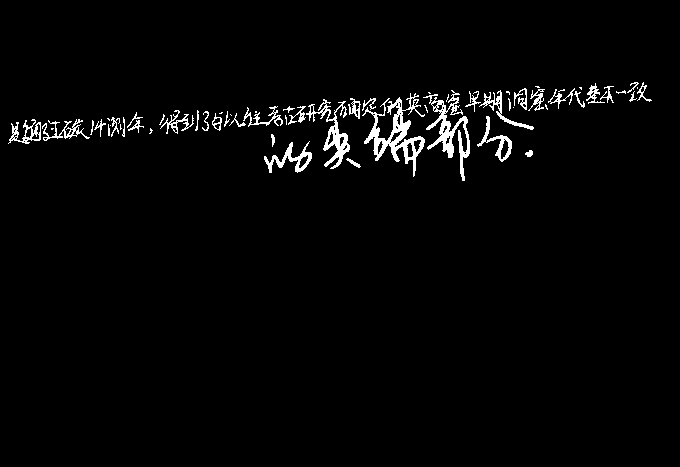 是通过碳14测年，得到了与以往考古研究确定的莫高窟早期洞窟年代基本一致
的尖端部分.